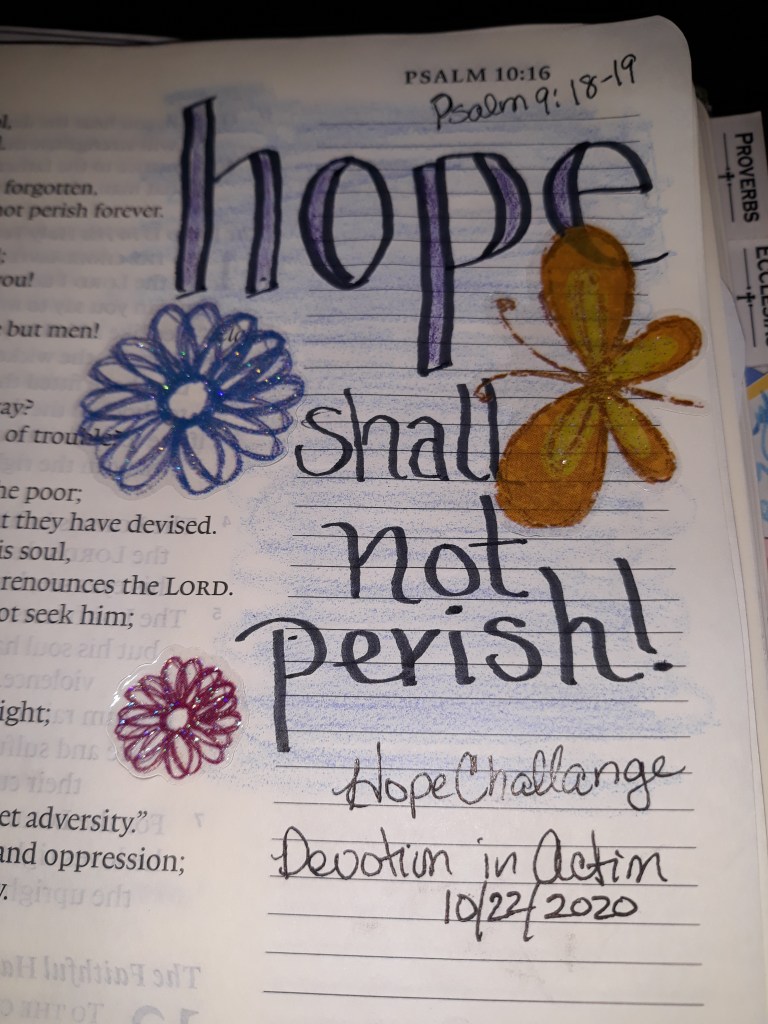 PSALM 10:16
forgotten.
not perish forever.
you!
but men!
ay?
of trouble?
he poor;
t they have devised.
is soul,
renounces the LORD.
ot seek him;
ight;
et adversity.”
and oppression;
y.
Psalm 9:18-19
hope
shall
not
perish!
Hope Challange
Devotion in Action
10/22/2020
PROVERBS
ECCLESIA